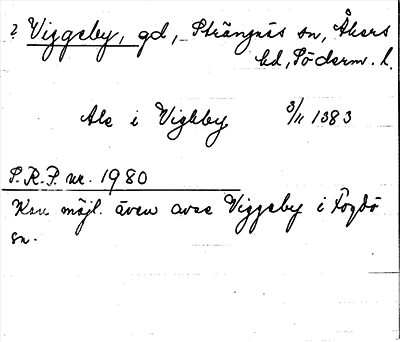 ? Viggeby, gd, Strängnäs sn, Åkers
hd, Söderm. l.
Ale i Vighby 3/11 1383
S.R.P. nr. 1980
Kan möjl. även avse Viggeby i Fogdö
sn.